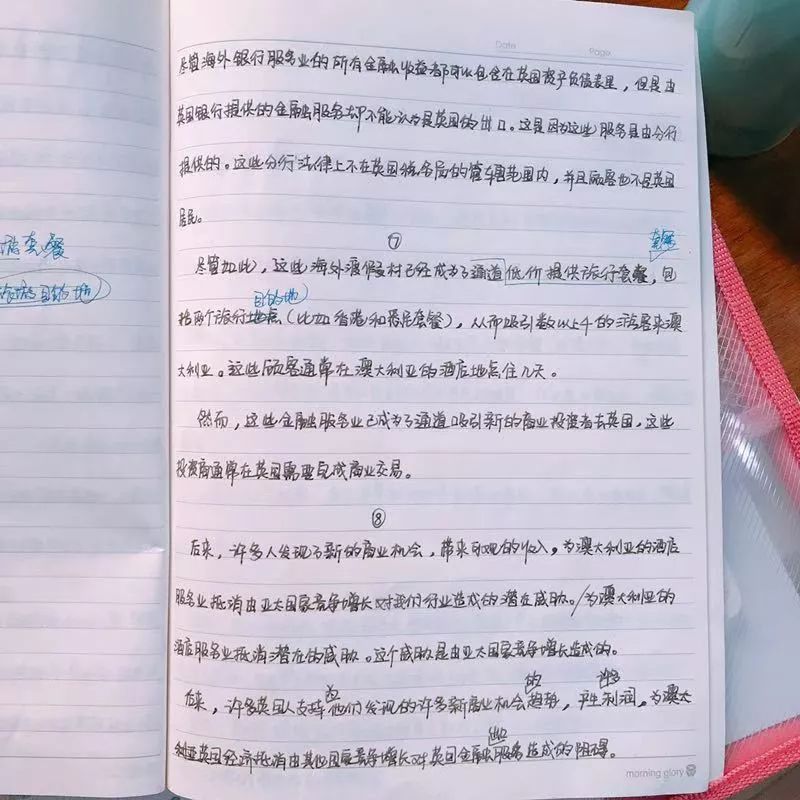 Date Page
尽管海外银行服务业的所有金融收益都可以包含在英国资产负债表里，但是由
英国银行提供的金融服务却不能认为是英国的出口。这是因为这些服务是由分行
提供的。这些分行法律上不在英国税务局的管辖范围内，并且顾客也不是英国
居民。
⑦
套餐
旅游目的地)
尽管如此，这些海外渡假村已经成为了通道低价提供旅行套餐，包
目的地
括两个旅行地点（比如香港和悉尼套餐），从而吸引数以千的游客来澳
大利亚。这些顾客通常在澳大利亚的酒店地点住几天。
然而，这些金融服务业已成为了通道吸引新的商业投资者去英国，这些
投资商通常在英国需要完成商业交易。
⑧
后来，许多人发现了新的商业机会，带来可观的收入，为澳大利亚的酒店
服务业抵消由亚太国家竞争增长对我们行业造成的潜在威胁。/为澳大利亚的
酒店服务业抵消潜在的威胁。这个威胁是由亚太国家竞争增长造成的。
为 的 许多
后来，许多英国人支持他们发现的许多新商业机会趋势，产生利润。为澳大
利亚英国经济抵消由其他国家竞争增长对英国金融服务造成的阻碍。
morning glory